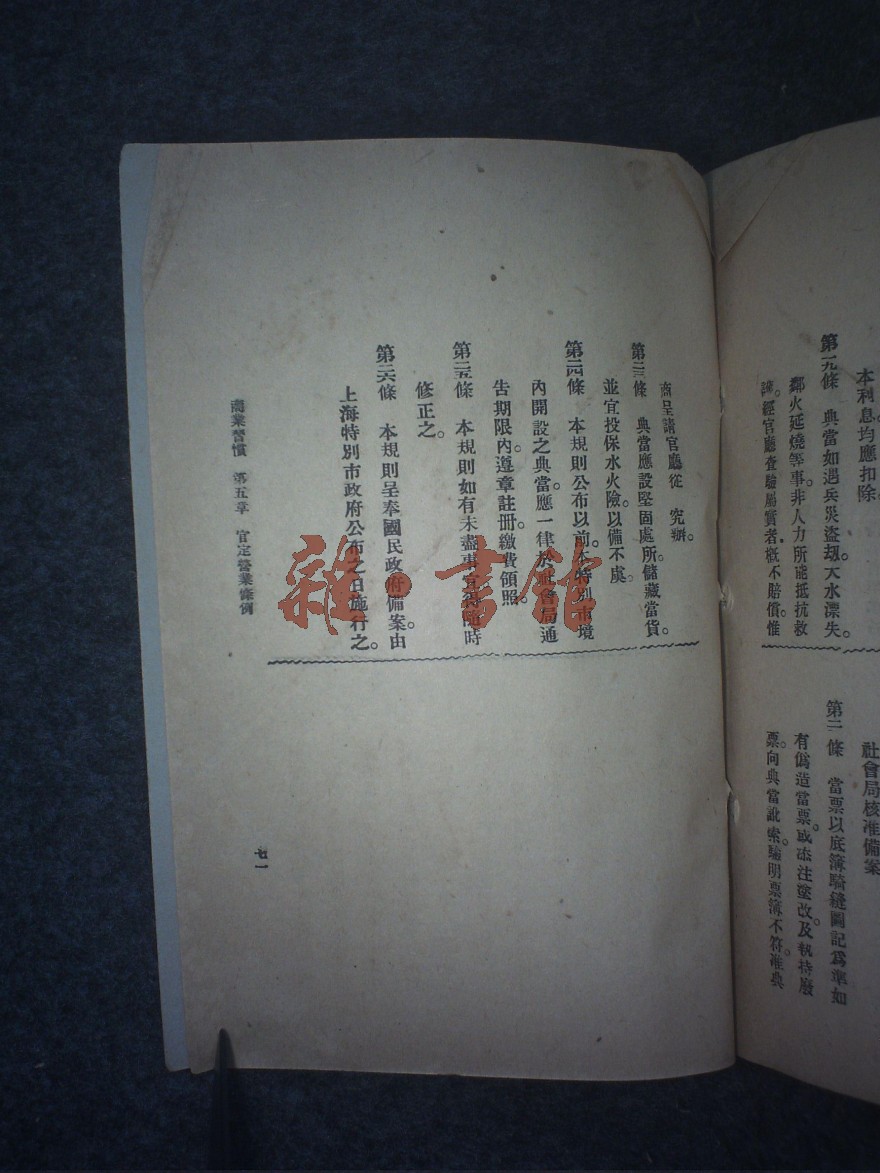 本利息均應扣除。
第一九條　典當如遇兵災盜刧。天水漂失。
鄰火延燒等事。非人力所能抵抗救
護。經官廳查驗屬實者。概不賠償。惟
社會局核准備案
第二　條　當票以底簿騎縫圖記爲準如
有僞造當票。或添注塗改。及執持廢
票。向典當訛索。驗明票簿不符。准典
商呈請官廳從　究辦。
第二三條　典當應設堅固處所。儲藏當貨。
並宜投保水火險。以備不虞。
第二四條　本規則公布以前。本特別市境
內開設之典當。應一律於社會局通
告期限內。遵章註册。繳費領照。
第二五條　本規則如有未盡事宜得隨時
修正之。
第二六條　本規則呈奉國民政府備案。由
上海特別市政府公布之日施行之。
商業習慣　第五章　官定營業條例
七一
雜·書館